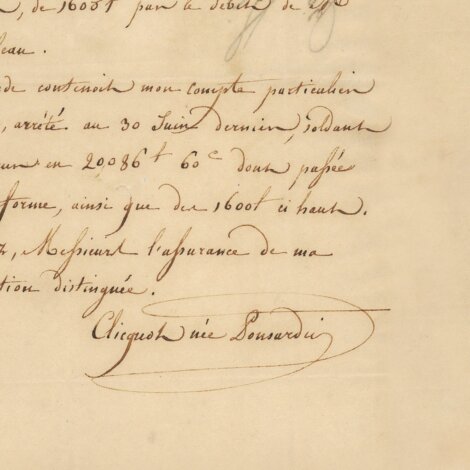 , de 1600f par le débit de
leau.
de contenoit mon compte particulier
, arrêté au 30 Juin dernier, soldant
en 20,086f 60c dont passée
forme, ainsi que des 1600f ci haut.
z, Messieurs l'assurance de ma
tion distinguée.
Clicquot née Ponsardin